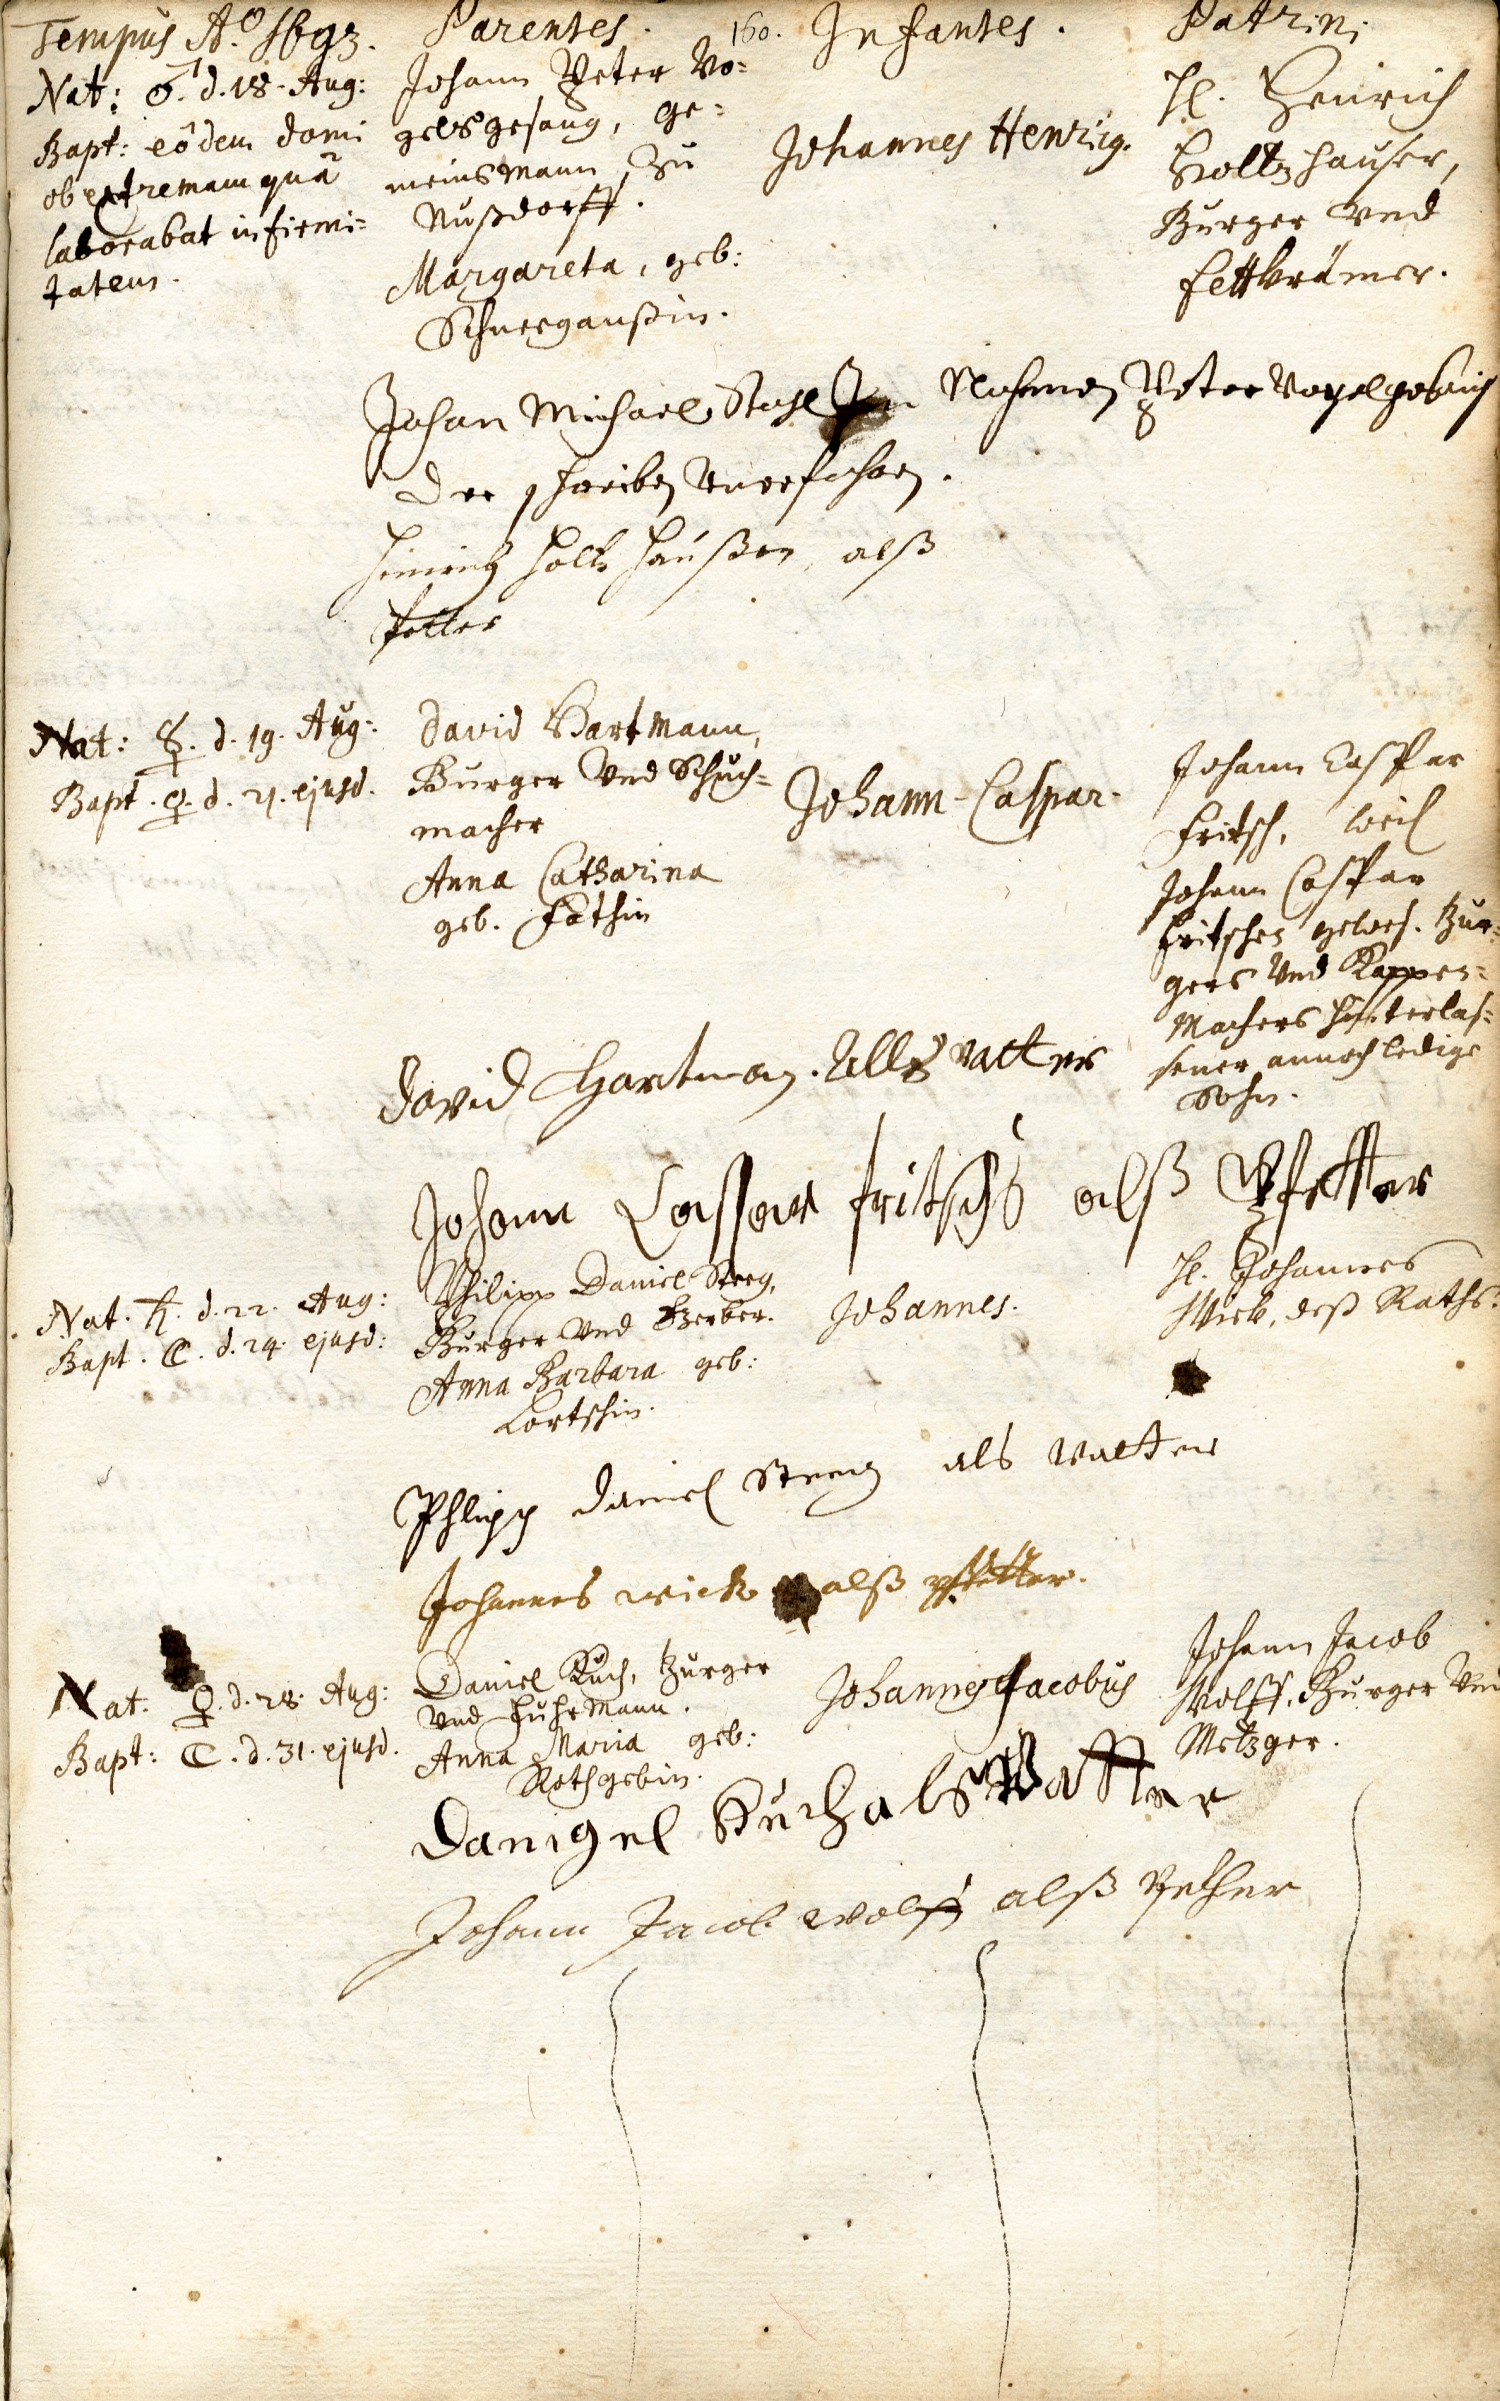 Tempus A.o 1693.
Parentes.
160.
Infantes.
Patrini
Nat: ♂. d. 18. Aug:
Bapt: eôdem domi
ob extremam quâ
laborabat infirmi=
tatem.
Johann Peter Vo=
gelsgesang, Ge=
meinsmann zu
Nußdorff.
Margareta, geb:
Schneeganßin.
Johannes Henrig.
H. Henrich
Holtzhauser,
Burger Vnd
Fettkrämer.
Johan Michael Stahl In Nahmen Peter Vogelgesang
der schreiben Vnerfahren.
Henrich Holtz Haußer, alß
Petter
Nat: ☿. d. 19. Aug:
Bapt. ♀. d. 21. ejusd.
David Hartmann,
Burger Vnd Schuch=
macher
Anna Catharina
geb. Fathin
Johann-Caspar.
Johann Caspar
Fritsch, weil
Johann Caspar
Fritschen gewes. Bur=
gers Vnd Kappen=
Machers hinterlas=
sener annoch ledige
Sohn.
David Hartman. Allß Vatter
Johann Casspar Fritsch alß Pfetter
Nat. ♄. d. 22. Aug:
Bapt. ☾. d. 24. ejusd:
Philipp Daniel Steeg,
Burger Vnd Gerber.
Anna Barbara geb:
Lortschin.
Johannes.
H. Johannes
Wick, deß Raths.
Phlipp Daniel Steeg als Vatter
Johannes Wick alß pfetter.
Nat. ♀. d. 28. Aug:
Bapt: ☾. d. 31. ejusd.
Daniel Kuch, Burger
Vnd Fuhrmann.
Anna Maria geb:
Rothgebin.
Johannes Jacobus
Johann Jacob
Wolff, Burger Vnd
Metzger.
Danigel Kuch als Vatter
Johann Jacob Wolff alß Pether